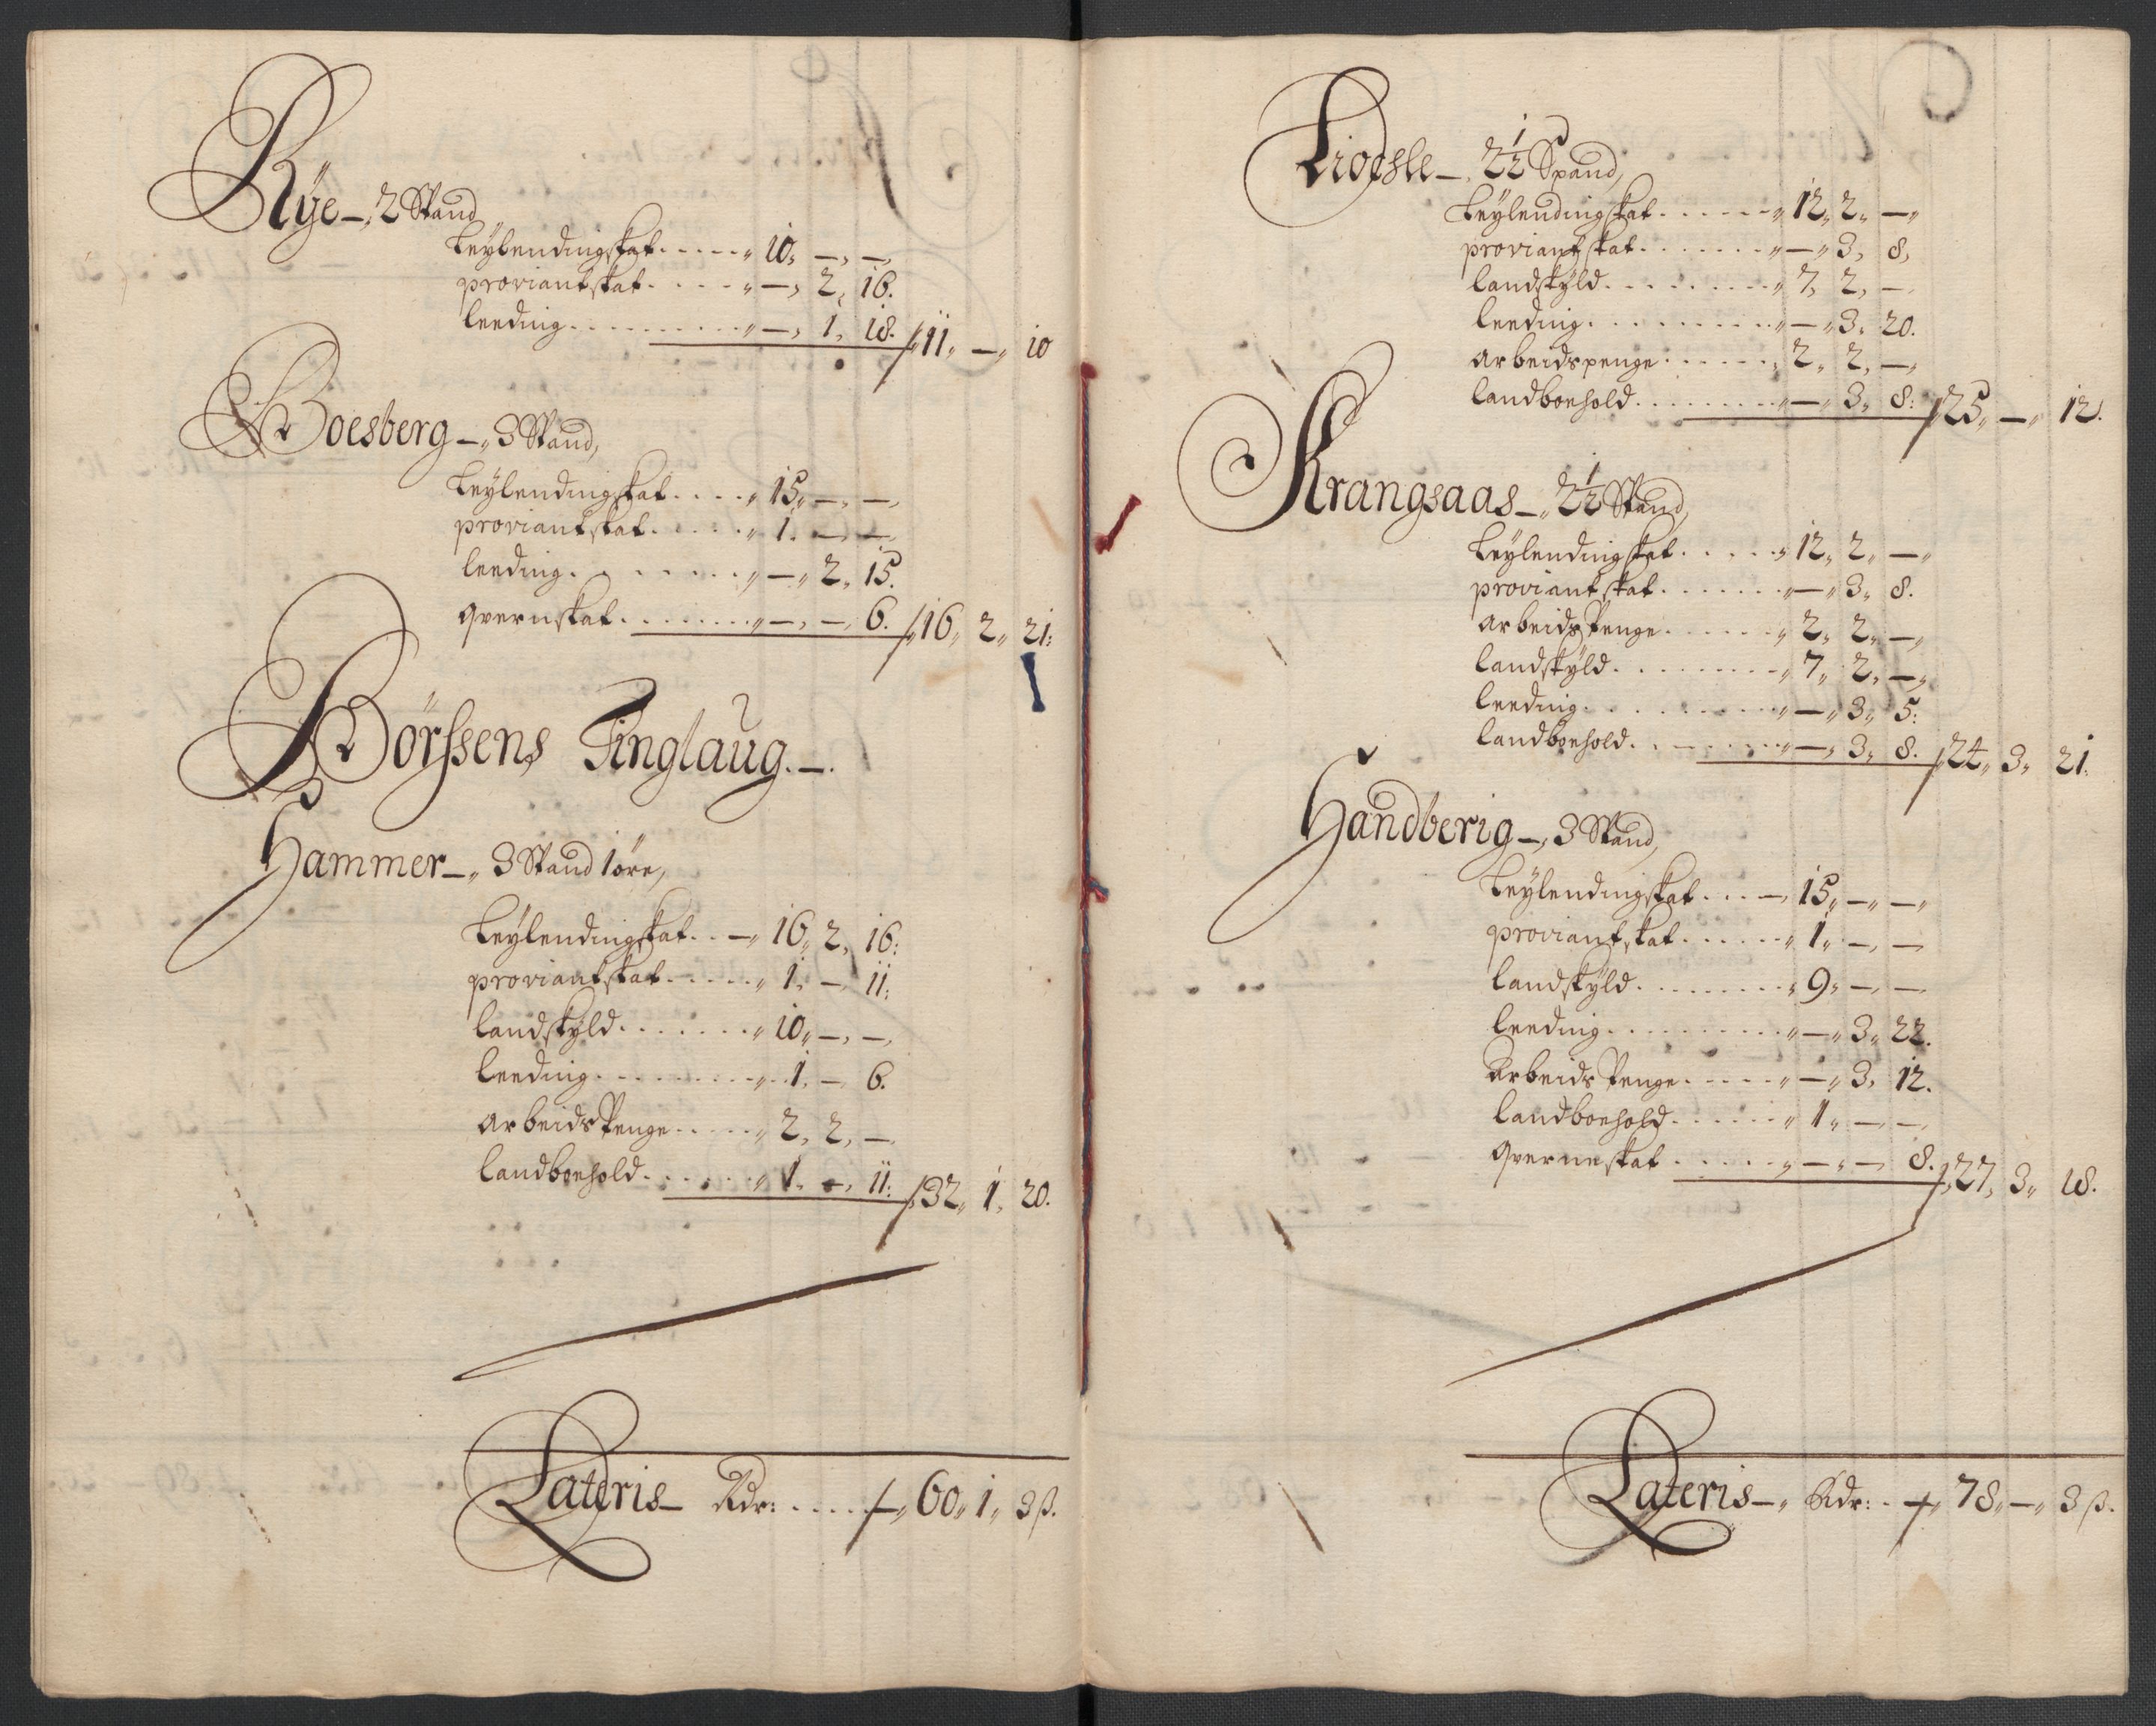 Rÿe -,, 2 Spand
Leÿlendingskat ..... ,, 10,, -,, -,,
proviantskat .... ,, -,, 2,, 16.
leeding .......... ,, -,, 1,, 18. / 11,, -,, 10
Boesberg -,, 3 Spand,
Leÿlendingskat .... ,, 15,, -,, -,,
proviantskat ..... ,, 1,, -,, -,,
leeding ......... ,, -,, 2,, 15.
qvernskat ....... ,, -,, -,, 6. / 16,, 2,, 21:
Börssens Tinglaug. -.
Hammer -,, 3 Spand 1 öre,
Leÿlendingskat .. -,, 16,, 2,, 16:
proviantskat ..... ,, 1,, -,, 11:
landskÿld ....... ,, 10,, -,, -,,
leeding ......... ,, 1,, -,, 6.
arbeids Penge ..... ,, 2,, 2,, -,,
landboehold ...... ,, 1,, -,, 11: / 32,, 1,, 20.
Lateris - Rdr: .... / -,, 60,, 1,, 3 β.
Liodsle -,, 2 1/2 Spand,
Leÿlendingskat ...... ,, 12,, 2,, -,,
proviantskat ....... ,, -,, 3,, 8,
landskÿld ......... ,, 7,, 2,, -,,
leeding .......... ,, -,, 3,, 20.
arbeidspenge ...... ,, 2,, 2,, -,,
landboehold ........ ,, -,, 3,, 8: / 25,, -,, 12.
Krangsaas -,, 2 1/2 Spand,
Leÿlendingskat ..... ,, 12,, 2,, -,,
proviantskat ....... ,, -,, 3,, 8.
arbeids Penge ...... ,, 2,, 2,, -,,
landskÿld ......... ,, 7,, 2,, -,,
leeding .......... ,, -,, 3,, 5:
landboehold ........ ,, -,, 3,, 8. / 24,, 3,, 21.
Handberig -,, 3 Spand,
Leÿlendingskat ... -,, 15,, -,, -,,
proviantskat ...... ,, 1,, -,, -,,
landskÿld ......... ,, 9,, -,, -,,
leeding .......... ,, -,, 3,, 22.
Arbeids Penge ..... ,, -,, 3,, 12.
landboehold ...... ,, 1,, -,, -,,
qverneskat ..... ,, -,, -,, 8. / 27,, 3,, 18.
Lateris -,, Rdr: . / ,, 78,, -,, 3 β.